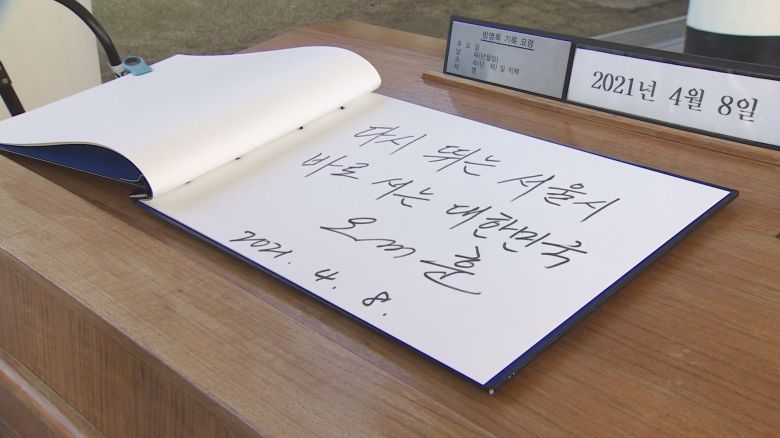 방명록 기록 요령
2021년 4월 8일
다시 뛰는 서울시
바로 서는 대한민국
오세훈
2021. 4. 8.